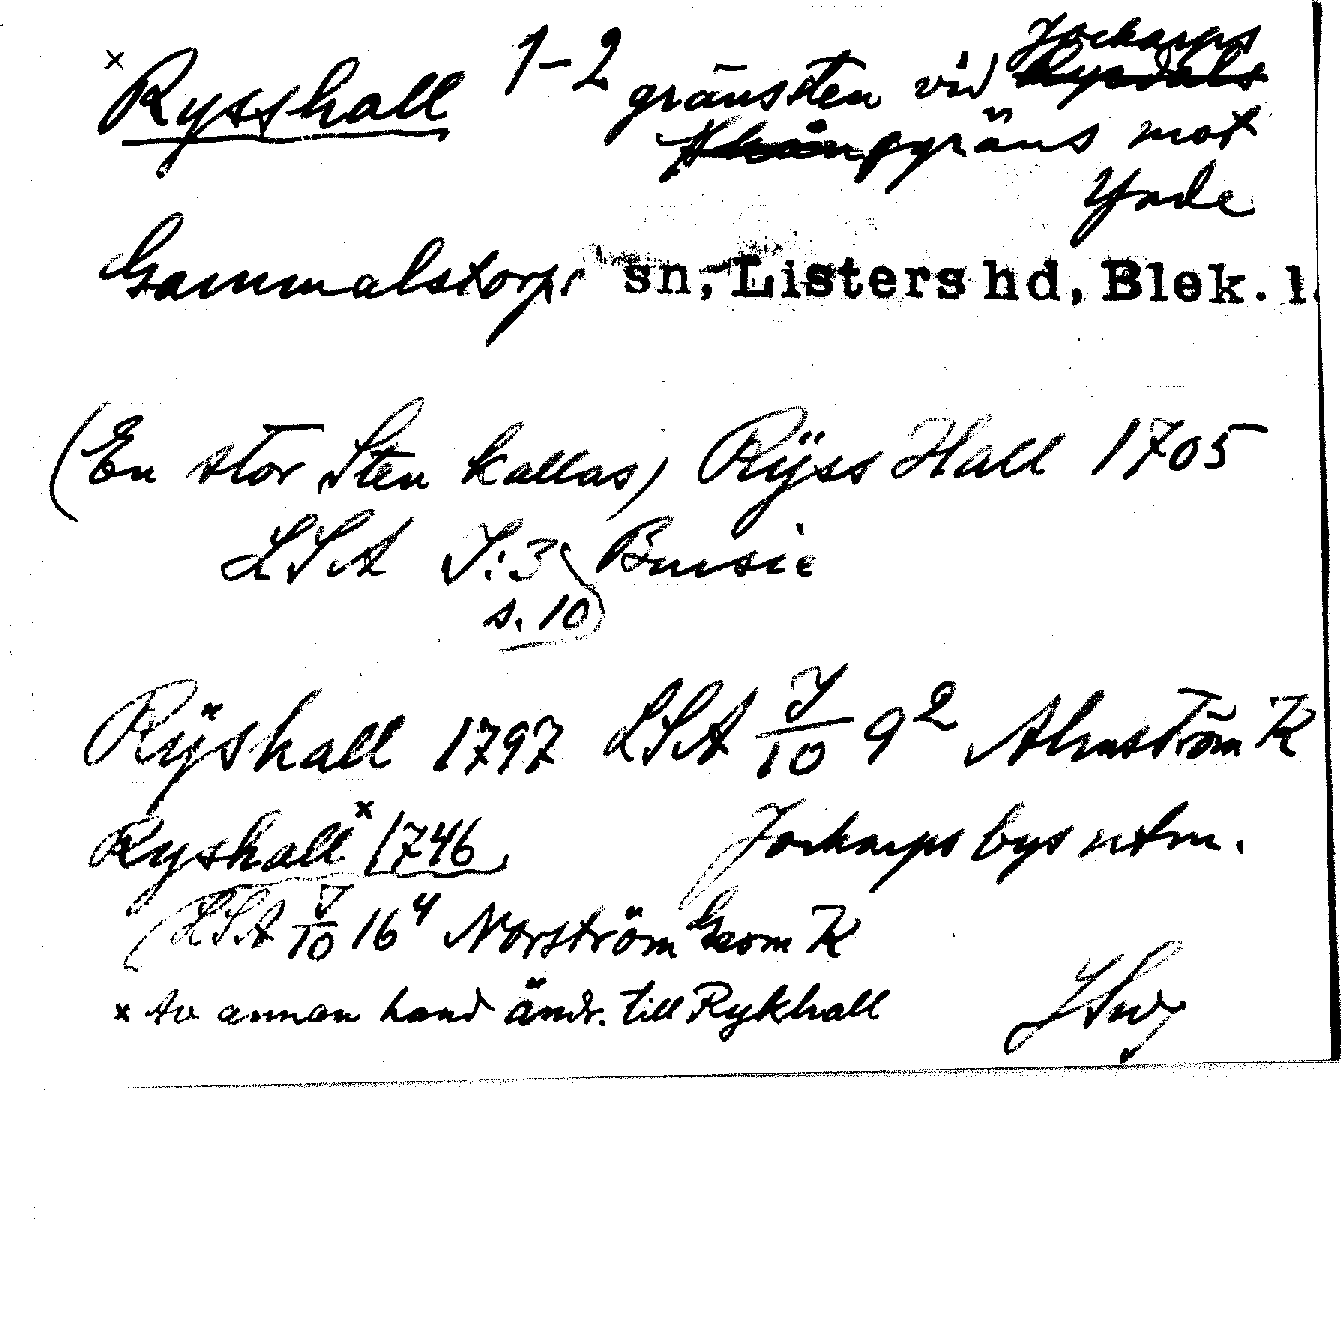 × Rysshall 1-2 gränsten vid Jockarps
gräns mot
Ynde
Gammalstorps sn, Listers hd, Blek. l.
(En stor Sten kallas) Rÿss Hall 1705
LSA I:3 Bursie
s. 10
Rÿshall 1797 LSA I/10 9² Almström K
Ryshall× 1746 Jockarps bys utm.
(LSA I/10 16⁴ Norström Geom K
× Av annan hand ändr. till Rykhall